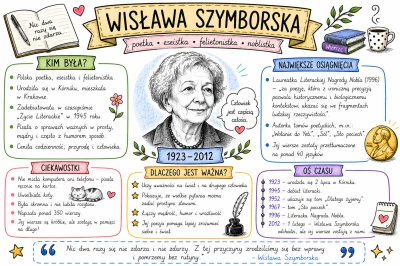 Nic dwa
razy się
nie zdarza
WISŁAWA SZYMBORSKA
poetka • eseistka • felietonistka • noblistka
KIM BYŁA?
Polska poetka, eseistka i felietonistka.
Urodziła się w Kórniku, mieszkała
w Krakowie.
Zadebiutowała w czasopiśmie
„Życie Literackie” w 1945 roku.
Pisała o sprawach ważnych w prosty,
mądry i często z humorem sposób.
Ceniła codzienność, przyrodę i człowieka.
Człowiek
jest częścią
1923–2012
NAJWIĘKSZE OSIĄGNIĘCIA
Laureatka Literackiej Nagrody Nobla (1996)
– „za poezję, która z ironiczną precyzją
pozwala historycznemu i biologicznemu
kontekstowi ukazać się we fragmentach
ludzkiej rzeczywistości”.
Autorka tomów poetyckich, m.in.:
„Wołanie do Yeti”, „Sól”, „Sto pociech”
Jej wiersze zostały przetłumaczone
na ponad 40 języków
CIEKAWOSTKI
Nie miała komputera ani telefonu – pisała
ręcznie na kartce.
Uwielbiała koty.
Była skromna i nie lubiła rozgłosu
Napisała ponad 350 wierszy
Jej wiersze są krótkie, ale zostają w pamięci
na długo!
DLACZEGO JEST WAŻNA?
Uczy uważności na świat i na drugiego człowieka.
Pokazuje, że wielkie pytania można
zadać prostymi słowami.
Łączy mądrość, humor i wrażliwość
Jej poezja pomaga lepiej zrozumieć
siebie i świat.
OŚ CZASU
1923 – urodziła się 2 lipca w Kórniku.
1945 – debiut literacki
1952 – ukazuje się tom „Dlatego żyjemy”
1967 – tom „Sto pociech”
1996 – Literacka Nagroda Nobla.
2012 – 1 lutego – Wisława Szymborska
odchodzi w Krakowie.
„ Nic dwa razy się nie zdarza i nie zdarzy. Z tej przyczyny zrodziliśmy się bez wprawy
i pomrzemy bez rutyny. ”
– Wisława Szymborska